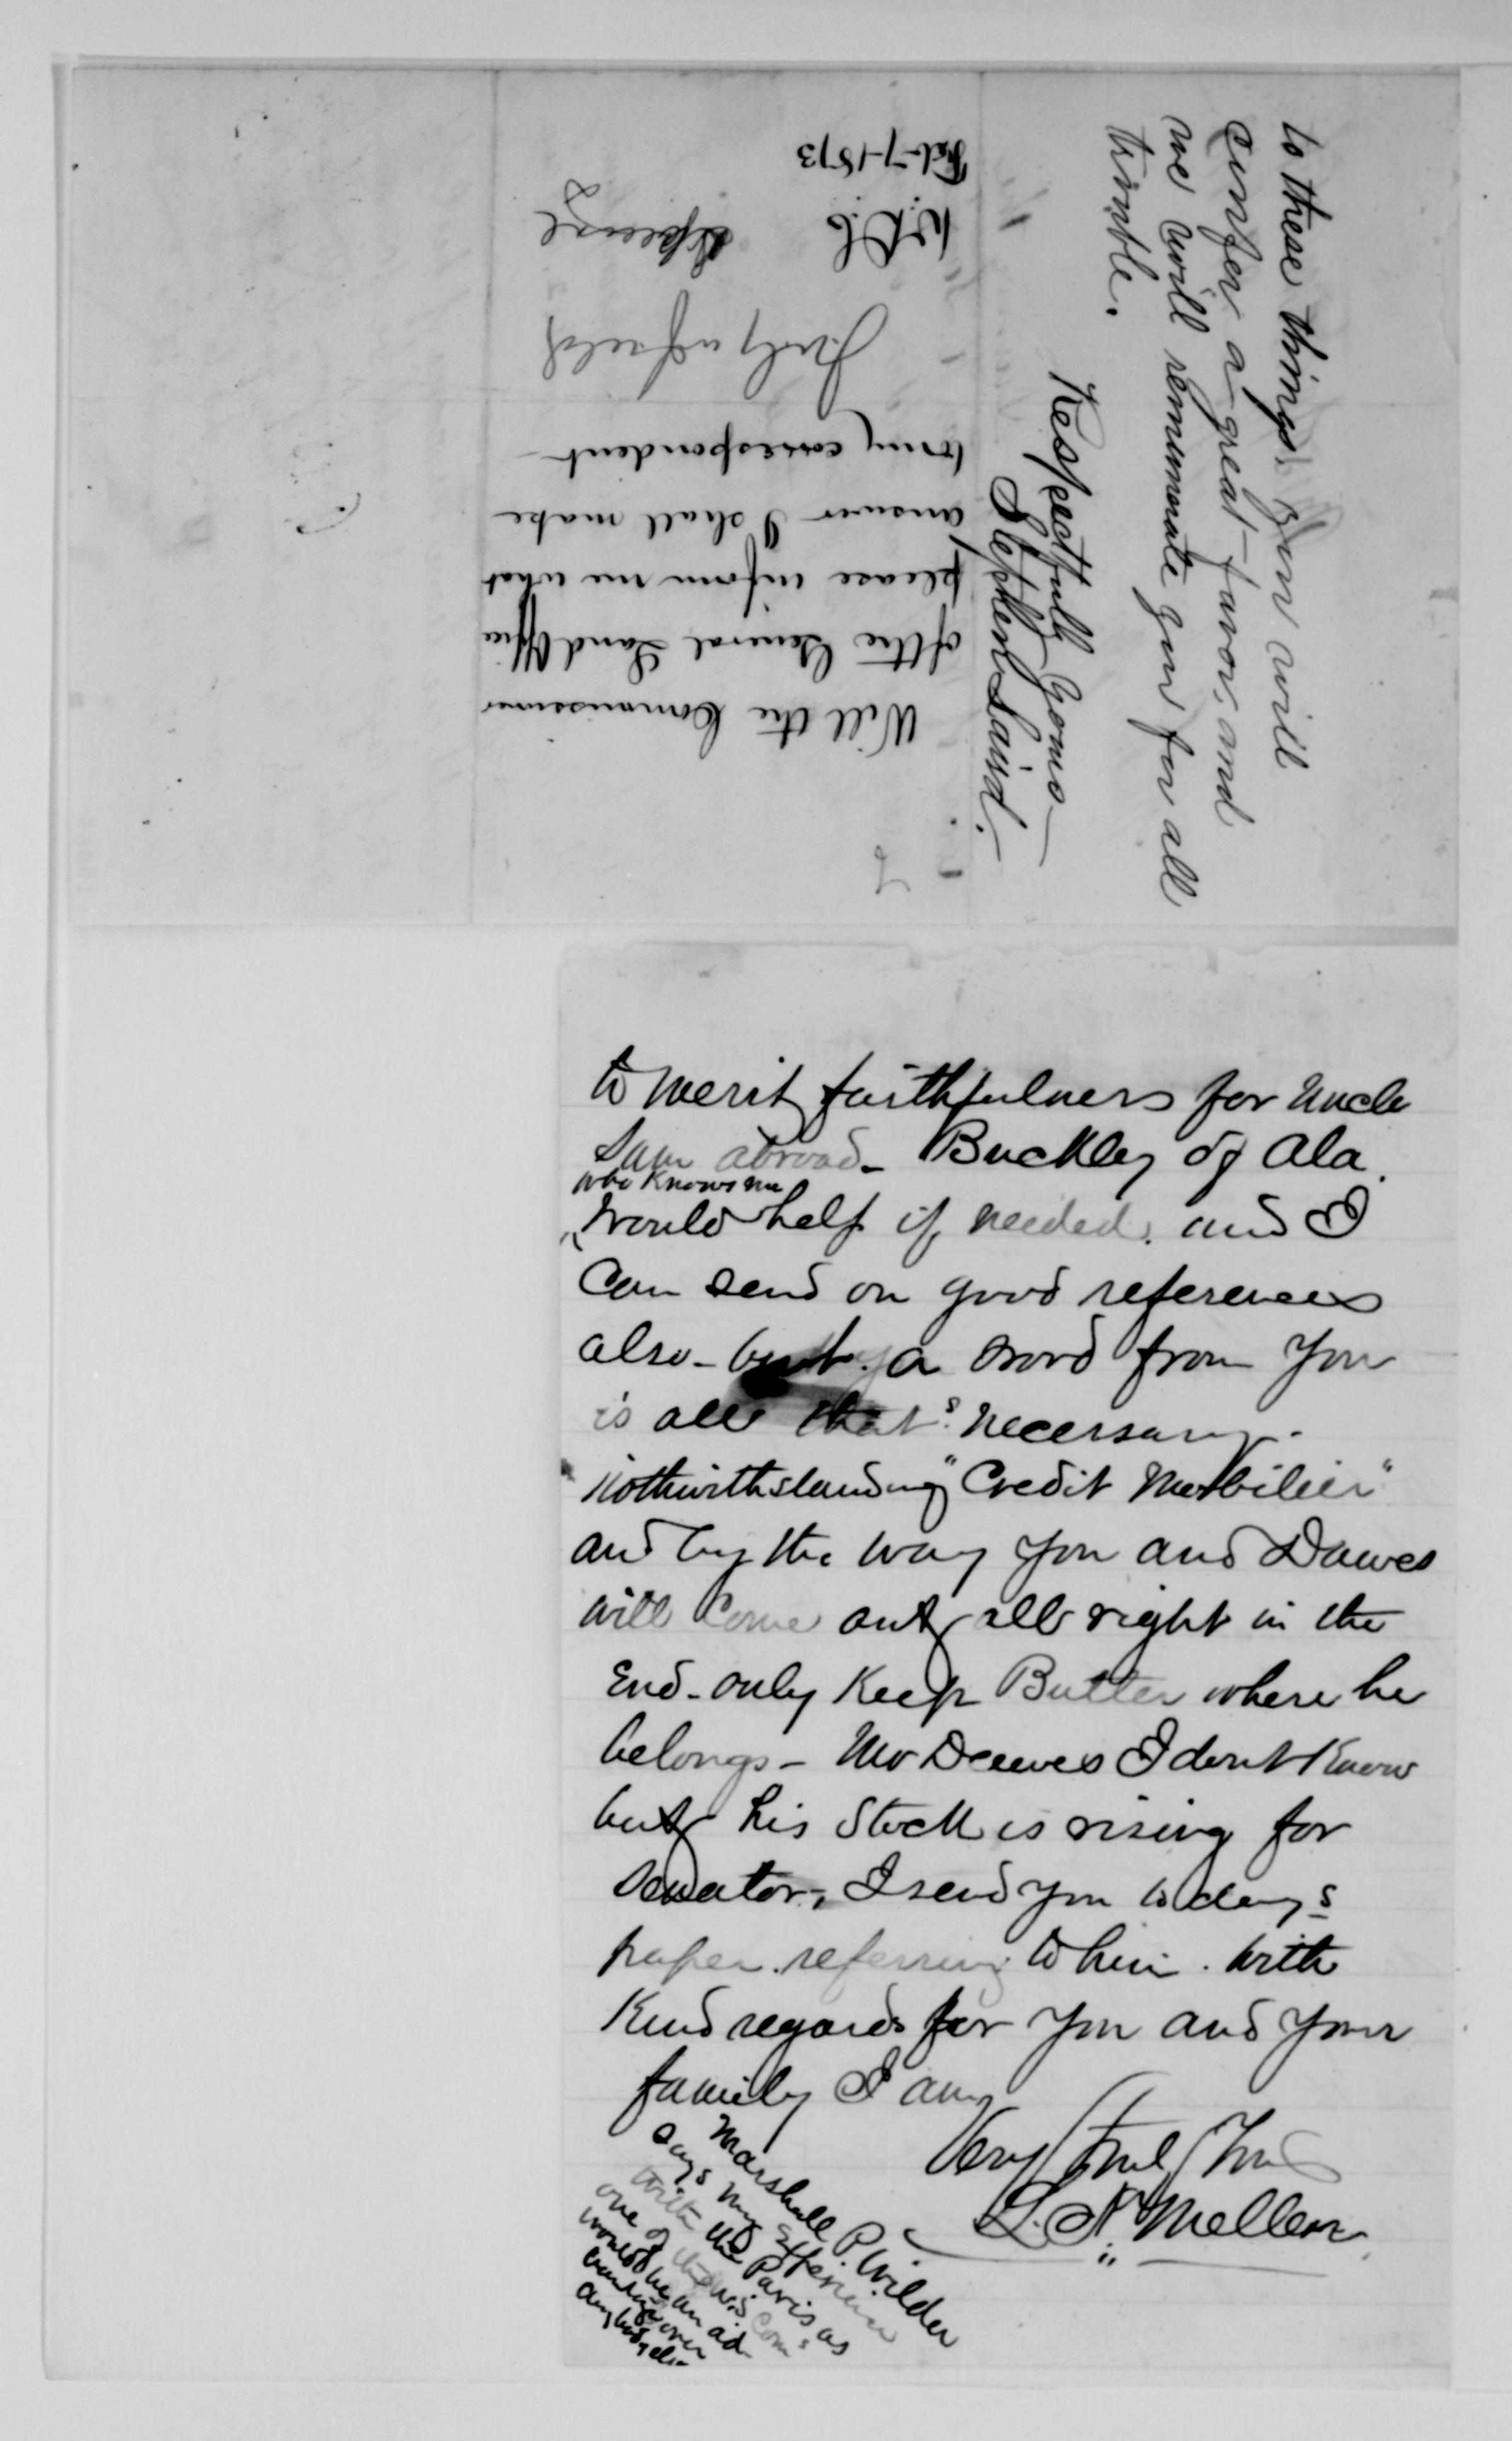 to these things. you will
confer a great favor, and
we will remunerate you for all
trouble.
Respectfully Yours
Stephen Laird.
Will the Commissioner
of the General Land Office
please inform me what
answer I shall make
to my correspondent
Feb-7-1873
to merit faithfulness for Uncle
Sam abroad - Buckley of Ala.
who knows me
would help if needed. and I
Can send on good references
also - but a word from you
is all that's necessary -
Nothwithstanding "Credit Mobilier"
and by the way you and Dawes
will come out all right in the
End - only Keep Butler where he
belongs - Mr Dawes I dont Know
but his Stock is rising for
Senator, I send you to day s
paper referring to him. With
Kind regards for you and your
family I am
Very Truly Yours
L. N. Mellen
Marshall P. Wilder
says my experience
with the Paris as
one of the U.S. Coms
would be an ad-
vantage over
any body else